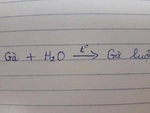 Gà + H₂O t° → Gà luộ